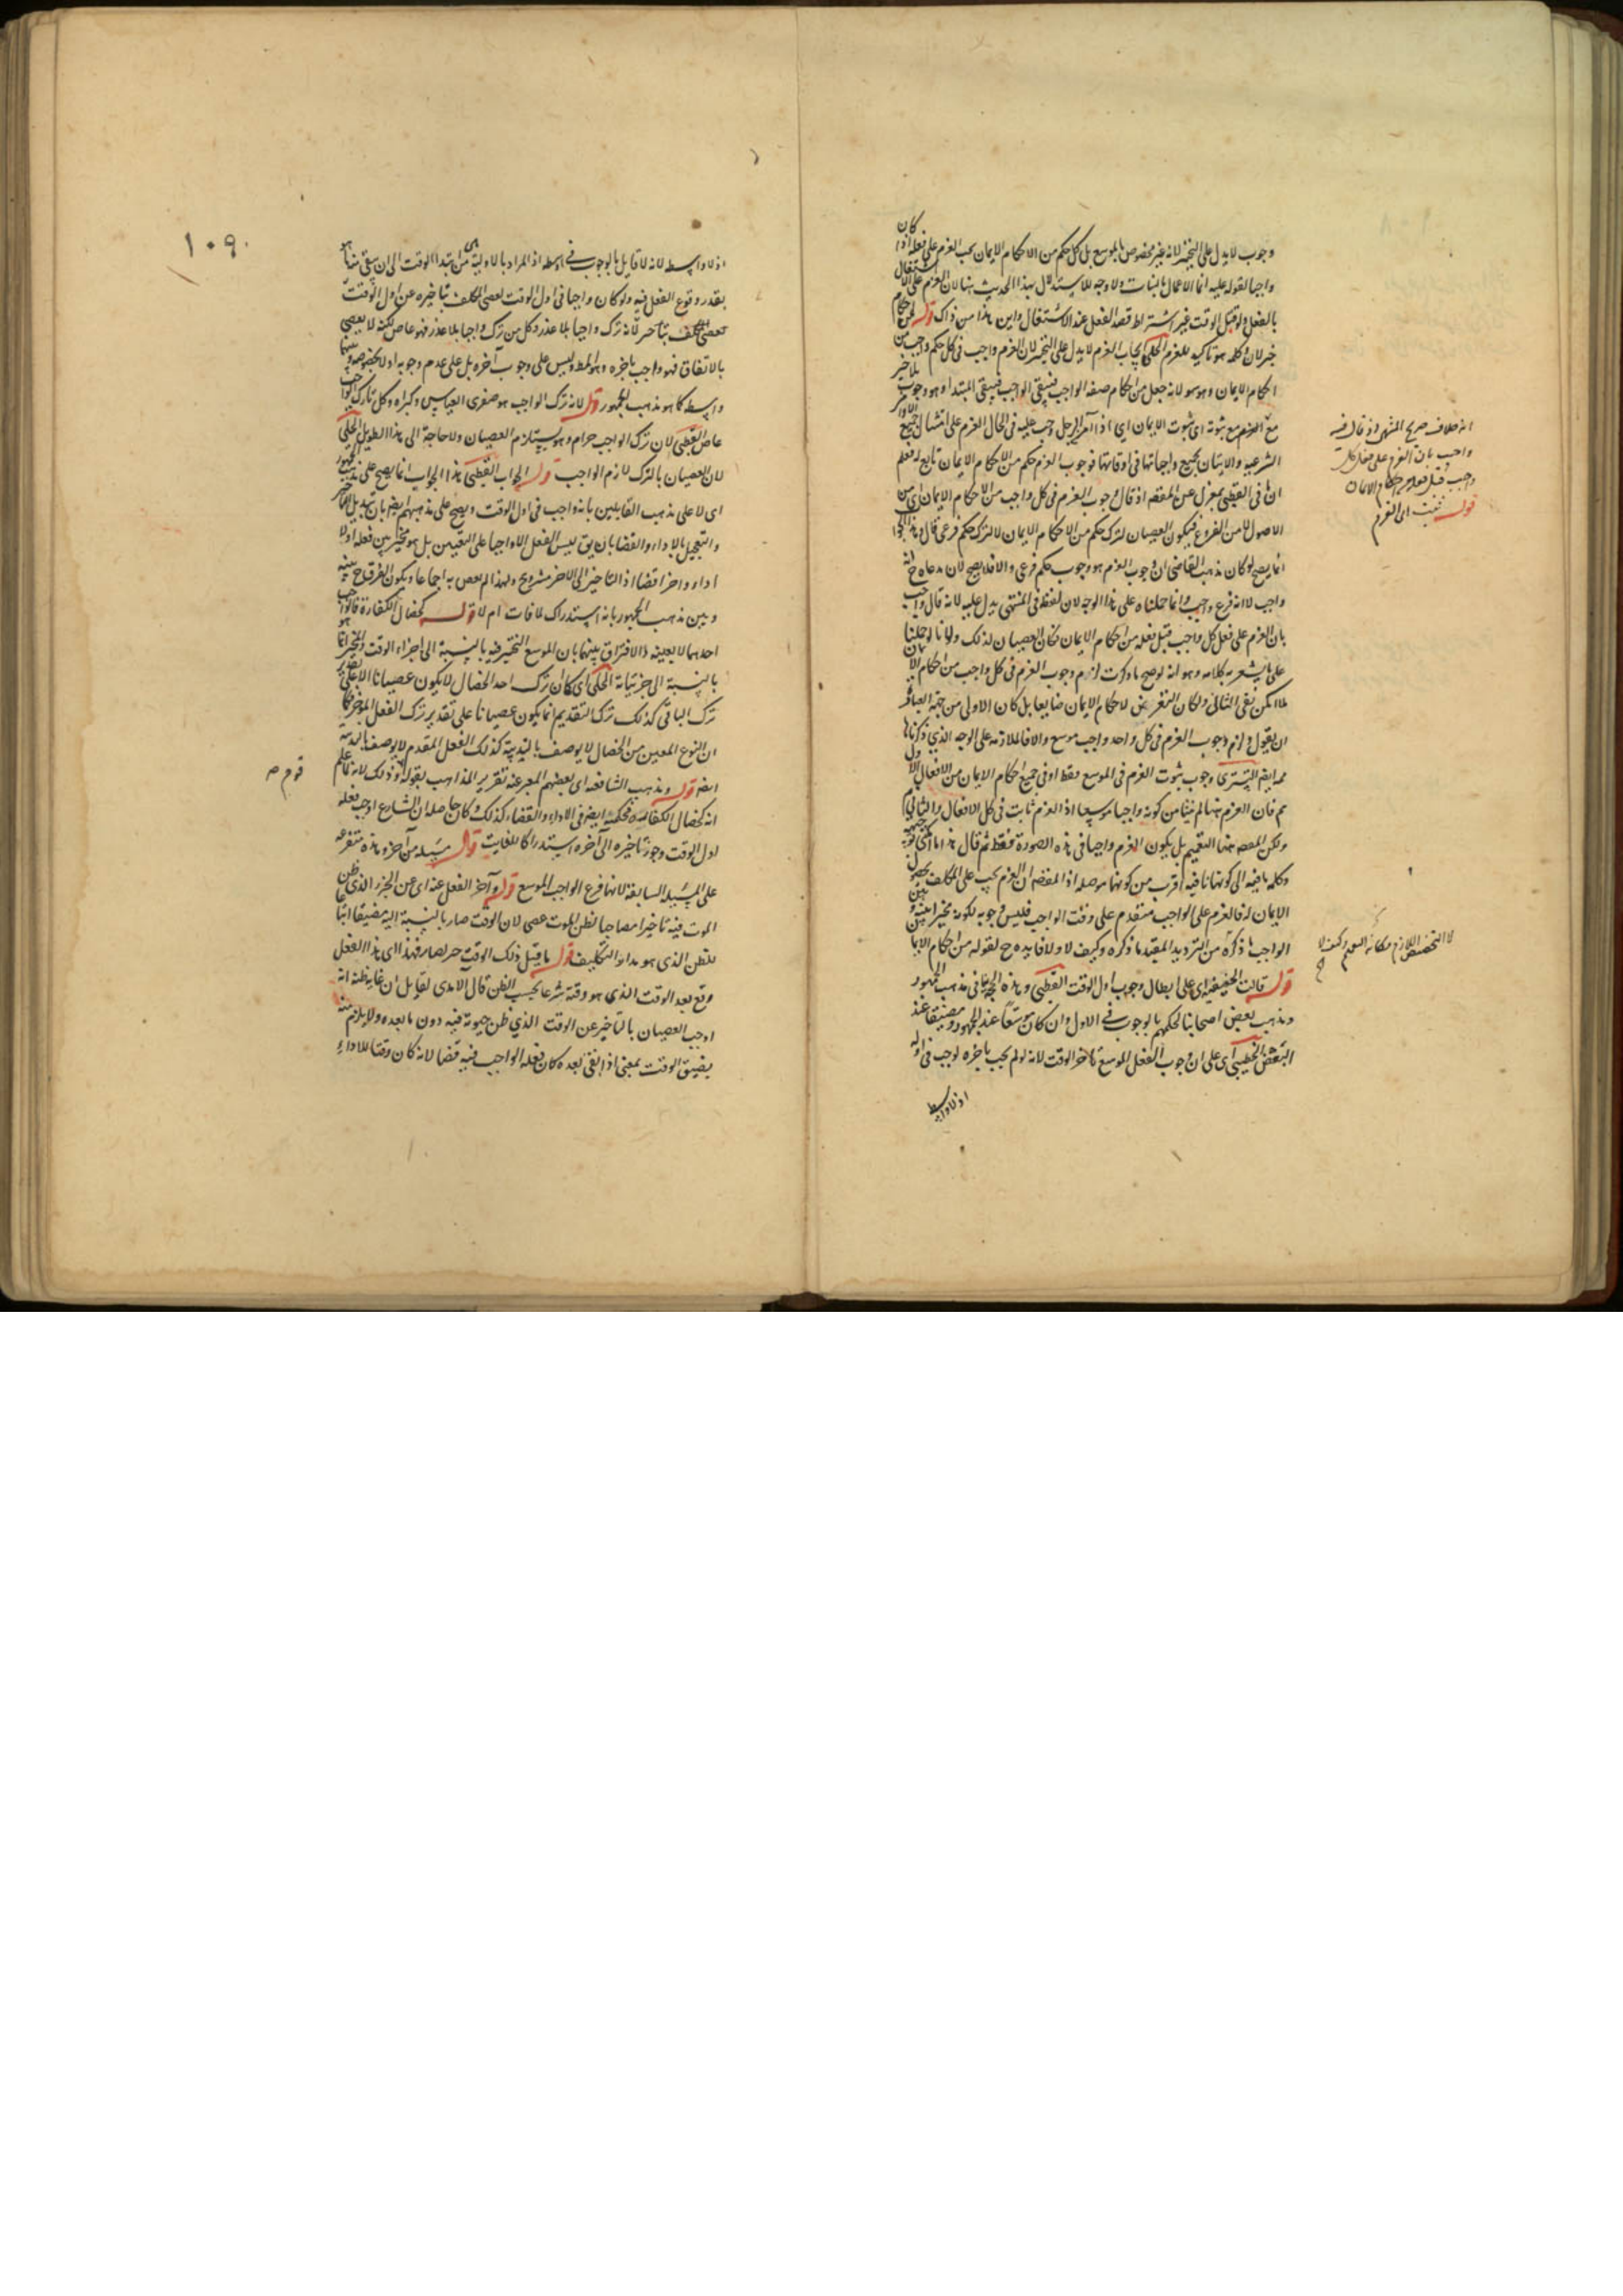 وجوب لا يدل على التخيير لانه غير مخصوص بالموسع بل كل حكم من الاحكام الايمان يجب العزم على فعله اذا كان
واجبا لقوله عليه انما الاعمال بالنيات ولا وجه للاستدلال بهذا الحديث هنا لان العزم على الاشتغال
بالفعل ولو قبل الوقت غير اشتراط قصد الفعل عند الاشتغال واين هذا من ذاك قوله من احكام
خبر لان وكله هو تاكيد للعزم الحلى ايجاب العزم لا يدل على التخيير لان العزم واجب فى كل حكم واجب من
احكام الايمان وهو سهو لانه جعل من احكام صفة الواجب فيبقى المبتدا وهو وجوب بلا خبر
مع ثبوته اى ثبوت الايمان اى اذا آمن الرجل وجب عليه فى الحال العزم على امتثال جميع الاوامر
الشرعية والاتيان بجميع واجباتها فى اوقاتها فوجوب العزم حكم من الاحكام الايمان تابع له فعلم
ان ما فى القطبى بمعزل عن المقصد اذ قال وجوب العزم فى كل واجب من الاحكام الايمان اى من
الاصول لا من الفروع فيكون العصيان لترك حكم من الاحكام الايمان لا لترك حكم فرعى قال وهذا الجواب
انما يصح لو كان مذهب القاضى ان وجوب العزم هو وجوب حكم فرعى والا فلا يصح لان مدعاه ح انه
واجب لا انه فرع واجب وانما حملناه على هذا الوجه لان لفظه فى المنتهى يدل عليه لانه قال واجب
بان العزم على فعل كل واجب قبل فعله من احكام الايمان فكان العصيان لذلك ولانا لو حملنا
على ما يشعر به كلامه وهو انه لو صح ما ذكرت لزم وجوب العزم فى كل واجب من احكام الايمان
لما امكن نفى التالى ولكان التعرض لاحكام الايمان ضايعا بل كان الاولى من جهة العبارة
ان يقول لزم وجوب العزم فى كل واحد واجب موسع والا فالملازمة على الوجه الذى ذكرناها
ايضا التسترى وجوب ثبوت العزم فى الموسع فقط او فى جميع احكام الايمان من الافعال الاول
م فان العزم هنا لم ينشا من كونه واجبا موسعا اذ العزم ثابت فى كل الافعال والثانى م
ولكن المقصد هنا التعميم بل يكون العزم واجبا فى هذه الصورة فقط ثم قال
وكلمة ما فيه الى كونها نافية اقرب من كونها موصلة اذ المقصد ان العزم يجب على المكلف بحصول
الايمان له فالعزم على الواجب متقدم على وقت الواجب فليس وجوبه لكونه مخيرا بينه وبين
الواجب ما ذكره من الترديد المعقد ما ذكره وكيف لا ولا فايدة ح لقوله من احكام الايمان
قوله قالت الحنفية اى على ابطال وجوب اول الوقت القطبى وهذه الحجة على نافى مذهب الجمهور
ومذهب بعض اصحابنا لحكمهم بالوجوب فى الاول وان كان موسعا عند الجمهور ومضيقا عند
البعض الخطيبى اى على ان وجوب الفعل الموسع بآخر الوقت لانه لو لم يجب باخره لوجب فى اوله
اذ لا واسط
انه خلاف صريح المنتهى اذ قال فيه
واجب بان العزم على فعل كل
واجب قبل فعله من احكام الايمان
قوله يثبت اى العزم
١٠٩
اذ لا واسطه لانه لا قايل بالوجوب فى اوسطه اذ المراد بالاولية هى من ابتدا الوقت الى ان يبقى منه ما هو
بقدر وقوع الفعل فيه ولو كان واجبا فى اول الوقت لعصى المكلف بتاخيره عن اول الوقت
لانه ترك واجبا بلا عذر وكل من ترك واجبا بلا عذر فهو عاص لكنه لا يعصى
بالاتفاق فهو واجب باخره وهو المط وليس على وجوب آخره بل على عدم وجوبه
واسطة كما هو مذهب الجمهور قوله لانه ترك الواجب هو صغرى القياس وكبراه وكل تارك الواجب
عاص القطبى لان ترك الواجب حرام وهو يستلزم العصيان ولا حاجة الى هذا الطويل الحلى
لان العصيان بالترك لازم الواجب قوله الجواب القطبى هذا الجواب انما يصح على مذهب الجمهور
اى لا على مذهب القايلين بانه واجب فى اول الوقت ويصح على مذهبهم ايضا بان تبديل التاخير
والتعجيل بالاداء والقضا بان يق ليس الفعل الاول واجبا على التعيين بل هو مخير بين فعله اولا
اداء واخرا قضا اذ التاخير الى الاخر مشروع ولهذا لم يعص به اجماعا ويكون الفرق ح بينه
وبين مذهب الجمهور بانه استدراك لما فات ام لا قوله كخصال الكفارة فالواجب
احدهما لا بعينه والافتراق بينهما بان الموسع التخيير فيه بالنسبة الى اجزاء الوقت والمخير انما هو
بالنسبة الى جزئياته الحلى اى كما ان ترك احد الخصال لا يكون عصيانا الا على تقدير
ترك الباقى كذلك ترك التقديم انما يكون عصيانا على تقدير ترك الفعل المؤخر كما
ان النوع المعين من الخصال لا يوصف بالندبية كذلك الفعل المقدم لا يوصف بالندبية
ايضا قوله ومذهب الشافعية اى بعضهم المعبر عنه تقرير المذاهب بقوله قوم وذلك لانه لما علم
انه كخصال الكفارة فحكمه ايضا فى الاداء والقضاء كذلك وكان حاصله ان الشارع اوجب فعله
اول الوقت وجوز تاخيره الى آخره استدراكا للفايت قال مسيله من آخر وهذه متفرعة
على المسيله السابقة لانها فرع الواجب الموسع قوله وآخر الفعل عنه اى عن الجزء الذى ظن
الموت فيه تاخيرا مصاحبا لظن الموت عصى لان الوقت صار بالنسبة اليه مضيقا اتباعا
للظن الذى هو مدار التكليف قوله ما قبل ذلك الوقت فهذا اى هذا الفعل
وقع بعد الوقت الذى هو وقته شرعا بحسب الظن قال الامدى لقايل ان غاية ظنه انه
اوجب العصيان بالتاخير عن الوقت الذى ظن حيوته فيه دون ما بعده ولا يلزم منه
يضيق الوقت بمعنى اذا بقى بعده كان فعله الواجب فيه قضا لانه كان وقتا للاداء
قوم صه